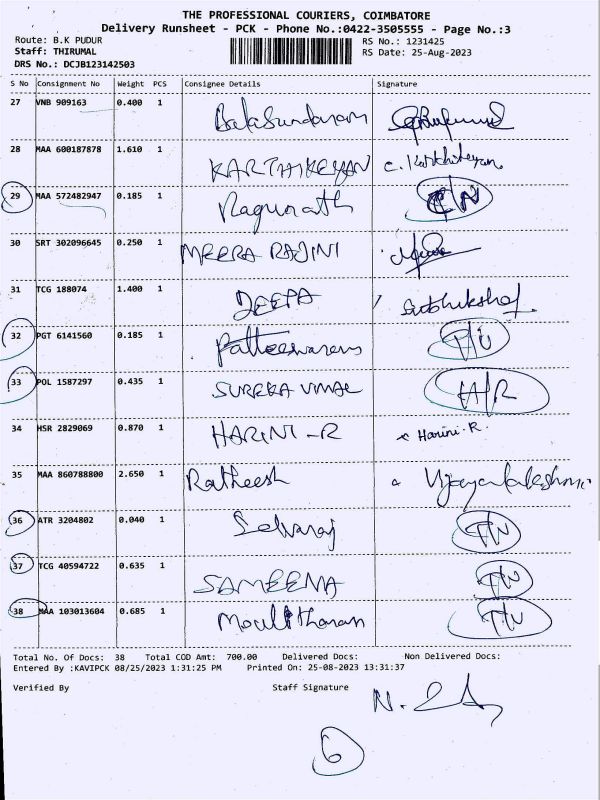 THE PROFESSIONAL COURIERS, COIMBATORE
Delivery Runsheet - PCK - Phone No.:0422-3505555 - Page No.:3
Route: B.K PUDUR RS No.: 1231425
Staff: THIRUMAL RS Date: 25-Aug-2023
DRS No.: DCJB123142503
S No Consignment No Weight PCS Consignee Details Signature
27 VNB 909163 0.400 1 Balasundaram
28 MAA 600187878 1.610 1 KARTHIKEYAN C. Karthikeyan
29 MAA 572482947 0.185 1 Ragunath
30 SRT 302096645 0.250 1 MEERA RAJINI
31 TCG 188074 1.400 1 DEEPA
32 PGT 6141560 0.185 1
33 POL 1587297 0.435 1 SUREKA VIMAL
34 HSR 2829069 0.870 1 HARINI -R Harini.R
35 MAA 860788800 2.650 1 Ratheesh
36 ATR 3204802 0.040 1 Selvaraj
37 TCG 40594722 0.635 1 SAMEENA
38 MAA 103013604 0.685 1
Total No. Of Docs: 38 Total COD Amt: 700.00 Delivered Docs: Non Delivered Docs:
Entered By :KAVIPCK 08/25/2023 1:31:25 PM Printed On: 25-08-2023 13:31:37
Verified By Staff Signature
6